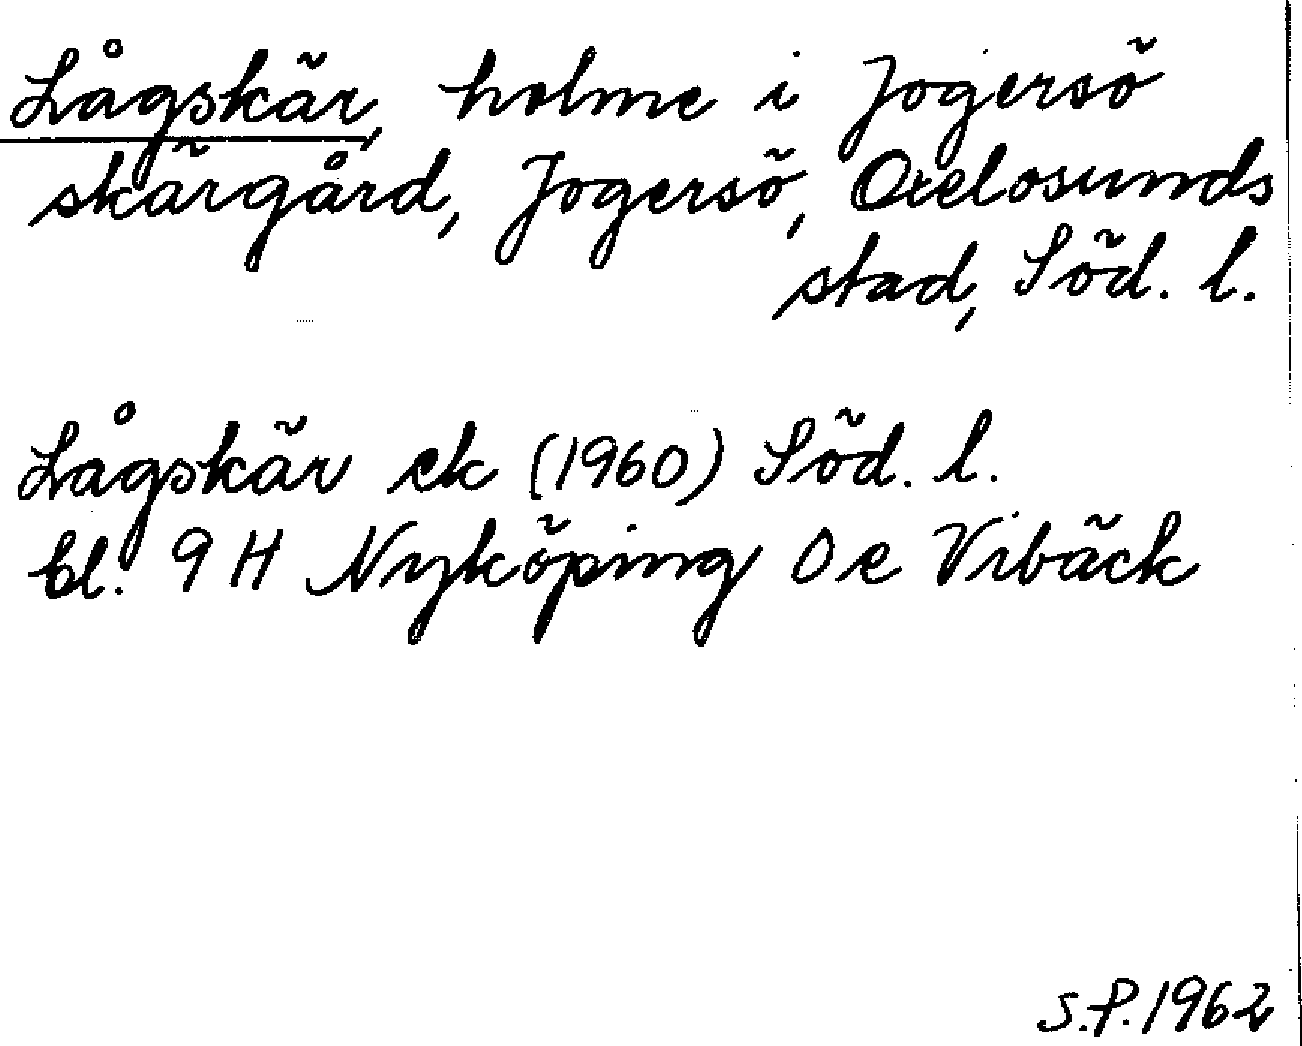 Lågskär, holme i Jogersö
skärgård, Jogersö, Oxelosunds
stad, Söd. l.
Lågskär ek (1960) Söd. l.
bl. 9 H Nyköping 0 e Vibäck
S.P. 1962